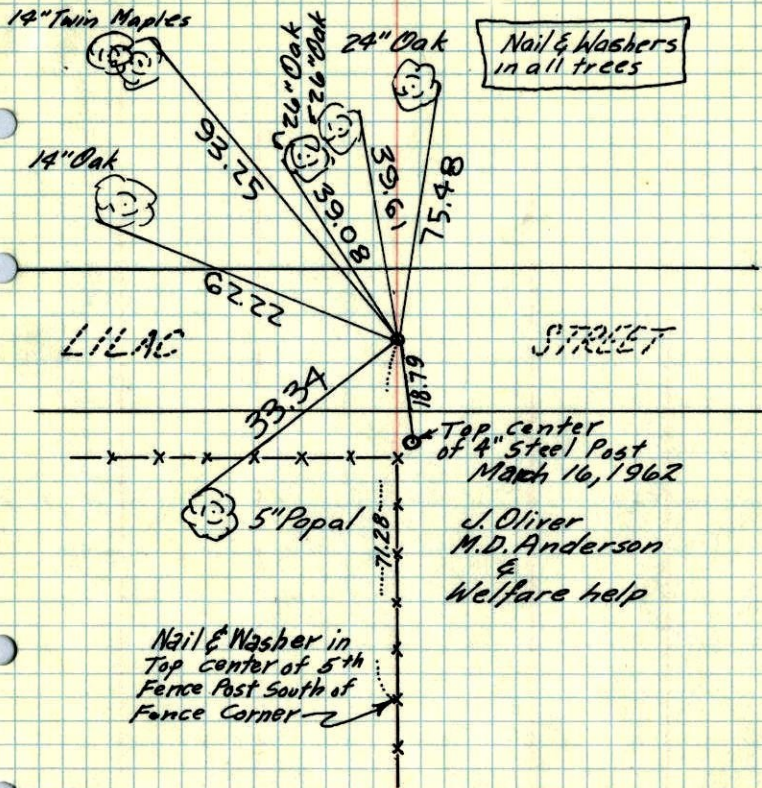 14" Twin Maples
26" Oak
26" Oak
24" Oak
Nail & Washers
in all trees
14" Oak
93.25
39.08
39.61
75.48
62.22
LILAC
STREET
33.34
18.79
Top center
of 4" Steel Post
March 16, 1962
5" Popal
71.28
J. Oliver
M.D. Anderson
&
Welfare help
Nail & Washer in
Top center of 5th
Fence Post South of
Fence Corner